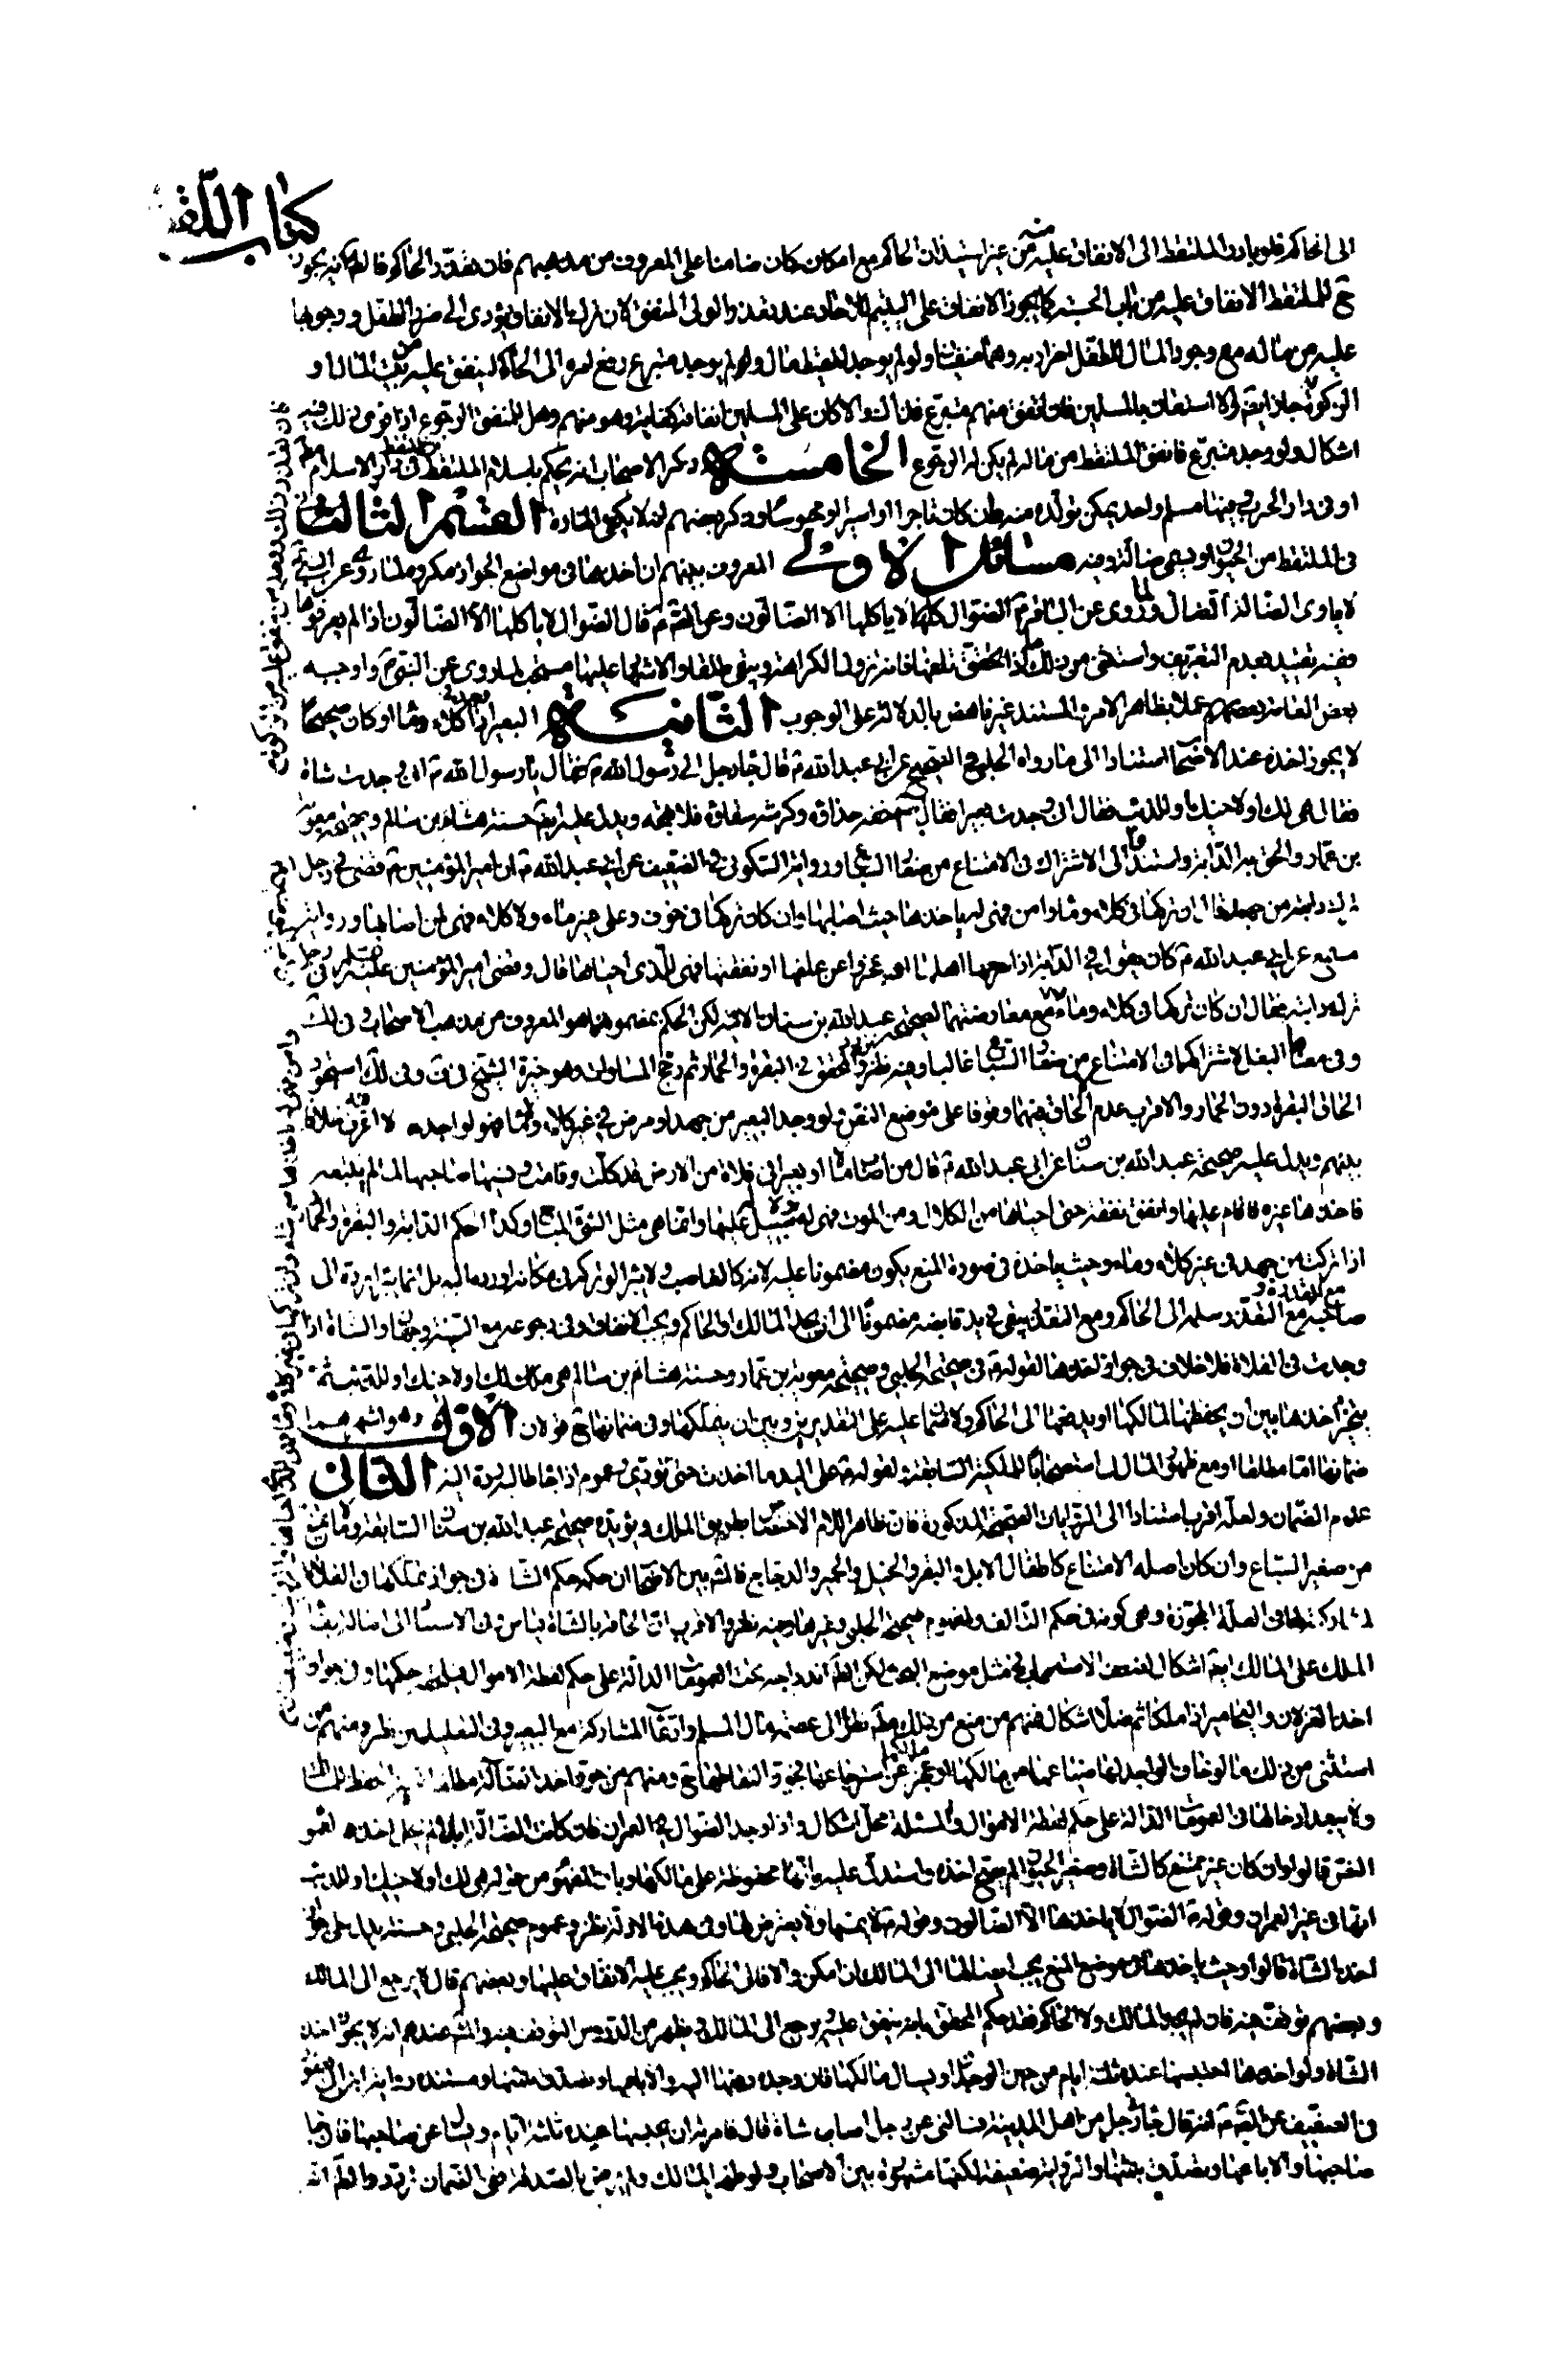 كتاب اللقطة
الى الحاكم فلو بادر الملتقط الى الانفاق عليه منه من غير استيذان الحاكم مع امكانه كان ضامنا على المعروف من مذهبهم فان تعذر الحاكم قالوا انه يجوز
ح للملتقط الانفاق عليه من باب الحسبة كما يجوز الانفاق على اليتيم للآحاد عند تعذر الولى المنفق لان ترك الانفاق يؤدى الى ضرر الطفل ووجوبها
عليه من ماله مع وجود المال للطفل اضرار به وهما منفيان ولو لم يوجد للقيط مال ولم يوجد متبرع رفع امره الى الحاكم لينفق عليه من بيت المال او
الزكوة جاز ايضا والا استعان بالمسلمين فان انفق منهم متبرع فذاك والا كان على المسلمين انفاقه كفاية وهو منهم وهل للمنفق الرجوع اذا نوى ذلك فيه
اشكال ولو وجد متبرع فانفق الملتقط من ماله لم يكن له الرجوع الخامسة ذكر الاصحاب انه يحكم باسلام الملتقط في دار الاسلام
او فى دار الحرب وفيها مسلم واحد يمكن تولده منه وان كان تاجرا او اسيرا او محبوسا وذكر بعضهم انه لا يكفى المارة القسم الثالث
فى الملتقط من الحيوان ويسمى ضالة وفيه مسائل الاولى المعروف بينهم ان اخذها فى مواضع الجواز مكروه لما روى عن النبى
لا ياوى الضالة الا الضال ولما روى عن الباقر الضوال كلها لا ياكلها الا الضالون وعن الصم قال الضوال لا ياكلها الا الضالون اذا لم يعرفوها
ففيه تقييد بعدم التعريف واستثنى من ذلك ما اذا تحقق تلفها فانه يزول الكراهة ويبقى طلقا والاشهاد عليها مستحب لما روى عن النبى ص واوجبه
بعض العامة وبعضهم عملا بظاهر الامر والمستند غير ناهض بالدلالة على الوجوب الثانية البعير اذا وجد فى كلاء وماء او كان صحيحا
لا يجوز اخذه عند الاصحاب استنادا الى ما رواه الحلبى فى الصحيح عن ابى عبد الله ع قال جاء رجل الى رسول الله ص فقال يا رسول الله ص انى وجدت شاة
فقال هى لك او لاخيك او للذئب فقال انى وجدت بعيرا فقال معه حذاؤه وكرشه سقاؤه فلا تهجه ويدل عليه ايضا حسنة هشام بن سالم وصحيحة معوية
بن عمار والحق به الدابة واستند الى الاشتراك فى الامتناع من صغار السباع ورواية السكونى فى الضعيف عن ابى عبد الله ع ان امير المؤمنين ع قضى فى رجل
ترك دابته من جهد فقال ان تركها فى كلاء وماء وامن فهى له ياخذها حيث اصابها وان كان تركها فى خوف وعلى غير ماء ولا كلاء فهى لمن اصابها ورواية
مسمع عن ابى عبد الله ع كان يقول فى الدابة اذا سرحها اهلها او عجزوا عن علفها او نفقتها فهى للذى احياها قال وقضى امير المؤمنين عليه السلام فى رجل
ترك دابته فقال ان كان تركها فى كلاء وماء مع معارضتهما لصحيحة عبد الله بن سنان الاتية لكن الحكم بمضمونها هو المعروف من مذهب الاصحاب وفى ذلك
وفى معناها البغل لاشتراكهما فى الامتناع من صغار السباع غالبا وفيه نظر وتردد المحقق فى البقرة والحمار ثم رجح المساواة وهو خيرة الشيخ فى ف وفى لك استجود
الحاق البقرة دون الحمار والاقرب عدم الحاق فيهما وقوفا على موضع النص ولو وجد البعير من جهد او مرض فى غير كلاء وماء فهو لواجده لا اعرف خلافا فيه
بينهم ويدل عليه صحيحة عبد الله بن سنان عن ابى عبد الله ع قال من اصاب مالا او بعيرا فى فلاة من الارض قد كلت وقامت وسيبها صاحبها لما لم يتبعه
فاخذها غيره فاقام عليها وانفق نفقة حتى احياها من الكلال ومن الموت فهى له ولا سبيل له عليها وانما هى مثل الشئ المباح وكذا حكم الدابة والبقرة والحمار
اذا تركت من جهد فى غير كلاء وماء وحيث ياخذه فى صورة المنع يكون مضمونا عليه لانه كالغاصب ولا يبرا لو تركه فى مكانه او رده اليه بل انما يبرا برده الى
صاحبه مع القدرة ومع التعذر سلمه الى الحاكم ومع التعذر يبقى فى يد قابضه مضمونا الى ان يجد المالك او الحاكم ويجب الانفاق وفى رجوعه مع النية وجهان والشاة اذا
وجدت فى الفلاة فلا خلاف فى جواز اخذها لقوله ص فى صحيحة الحلبى وصحيحة معوية بن عمار وحسنة هشام بن سالم هى لك او لاخيك او للذئب ثم
يتخير آخذها بين ان يحفظها لمالكها او يدفعها الى الحاكم ولا ضمان عليه على التقديرين وبين ان يتملكها وفى ضمانها ح قولان الاول وهو اشهرهما
ضمانها اما مطلقا او مع ظهور المالك استصحابا للملكية السابقة ولقوله ص على اليد ما اخذت حتى تؤدى وعموم اذا جاء طالبه رده اليه الثانى
عدم الضمان ولعله اقرب استنادا الى الروايات الصحيحة المذكورة فان ظاهر اللام الاختصاص بطريق الملك ويؤيده صحيحة عبد الله بن سنان السابقة وما لا يمتنع
من صغير السباع وان كان اصله الامتناع كاطفال الابل والبقر والخيل والحمير والدجاج فالشهر بين الاصحاب ان حكمه حكم الشاة فى جواز تملكها فى الفلاة
لمشاركتها فى العلة المجوزة وهى كونه فى حكم التالف ولمفهوم صحيحة الحلبى وغيرها وفيه نظر والاقرب ان الحاقه بالشاة قياس وفى الاستناد الى
الملك على المالك ايضا اشكال لضعف الاستصحاب فى مثل موضع البحث لكن الظ اندراجه تحت العمومات الدالة على حكم لقطة الاموال فيلحقه حكمها وفى جواز
اخذ الغزلان واليحامير اذا ملكا ثم ضلا اشكال فمنهم من منع من ذلك نظرا الى عصمة مال المسلم وادعاء المشاركة مع البعير وفى التعليلين نظر ومنهم من
استثنى من ذلك ما لو خاف الواجد لها ضياعها من مالكها او عجز مالكها عن استرجاعها فجوز التقاطها ح ومنهم من جوز اخذ الضالة مطلقا بنية الحفظ للمالك
ولا يبعد ادخالها فى العمومات الدالة على حكم لقطة الاموال والمسئلة محل اشكال واذا وجد الضوال فى العمران فان كانت الضالة ابلا لم يحل اخذه لعموم
النص قالوا وان كان غير ممتنع كالشاة وصغير الحيوان لم يصح اخذه واستدل عليه بانها محفوظة على مالكها وبان المفهوم من قوله هى لك او لاخيك او للذئب
انها فى غير العمران وقوله ع الضوال لا ياخذها الا الضالون وقوله ع لا يمسها ولا يتعرض لها وفى هذه الادلة نظر وعموم صحيحة الحلبى وحسنة يدل على جواز
اخذ الشاة قالوا وحيث ياخذها فى موضع المنع يجب ايصالها الى المالك ان امكن والا فالى الحاكم ويجب عليه الانفاق عليها وبعضهم قال لا يرجع الى المالك
وبعضهم توقف فيه فان لم يجد المالك ولا الحاكم فقد حكم المحقق بانه ينفق عليه ويرجع الى المالك ويظهر من الدروس التوقف فيه والشهر عندهم انه لا يجوز اخذ
الشاة ولو اخذها احتبسها عنده ثلثة ايام من حين الوجدان ويسال مالكها فان وجده دفعها اليه والا باعها وتصدق بثمنها ومستنده رواية ابن ابى يعفور
فى الضعيف عن الصم انه قال جاء رجل من اهل المدينة فسالنى عن رجل اصاب شاة قال فامرته ان يحبسها عنده ثلثة ايام ويسال عن صاحبها فان جاء
صاحبها والا باعها وتصدق بثمنها والرواية ضعيفة لكنها مشهورة بين الاصحاب ولو ظهر المالك ولم يرض بالصدقة ففى الضمان تردد والظ انه